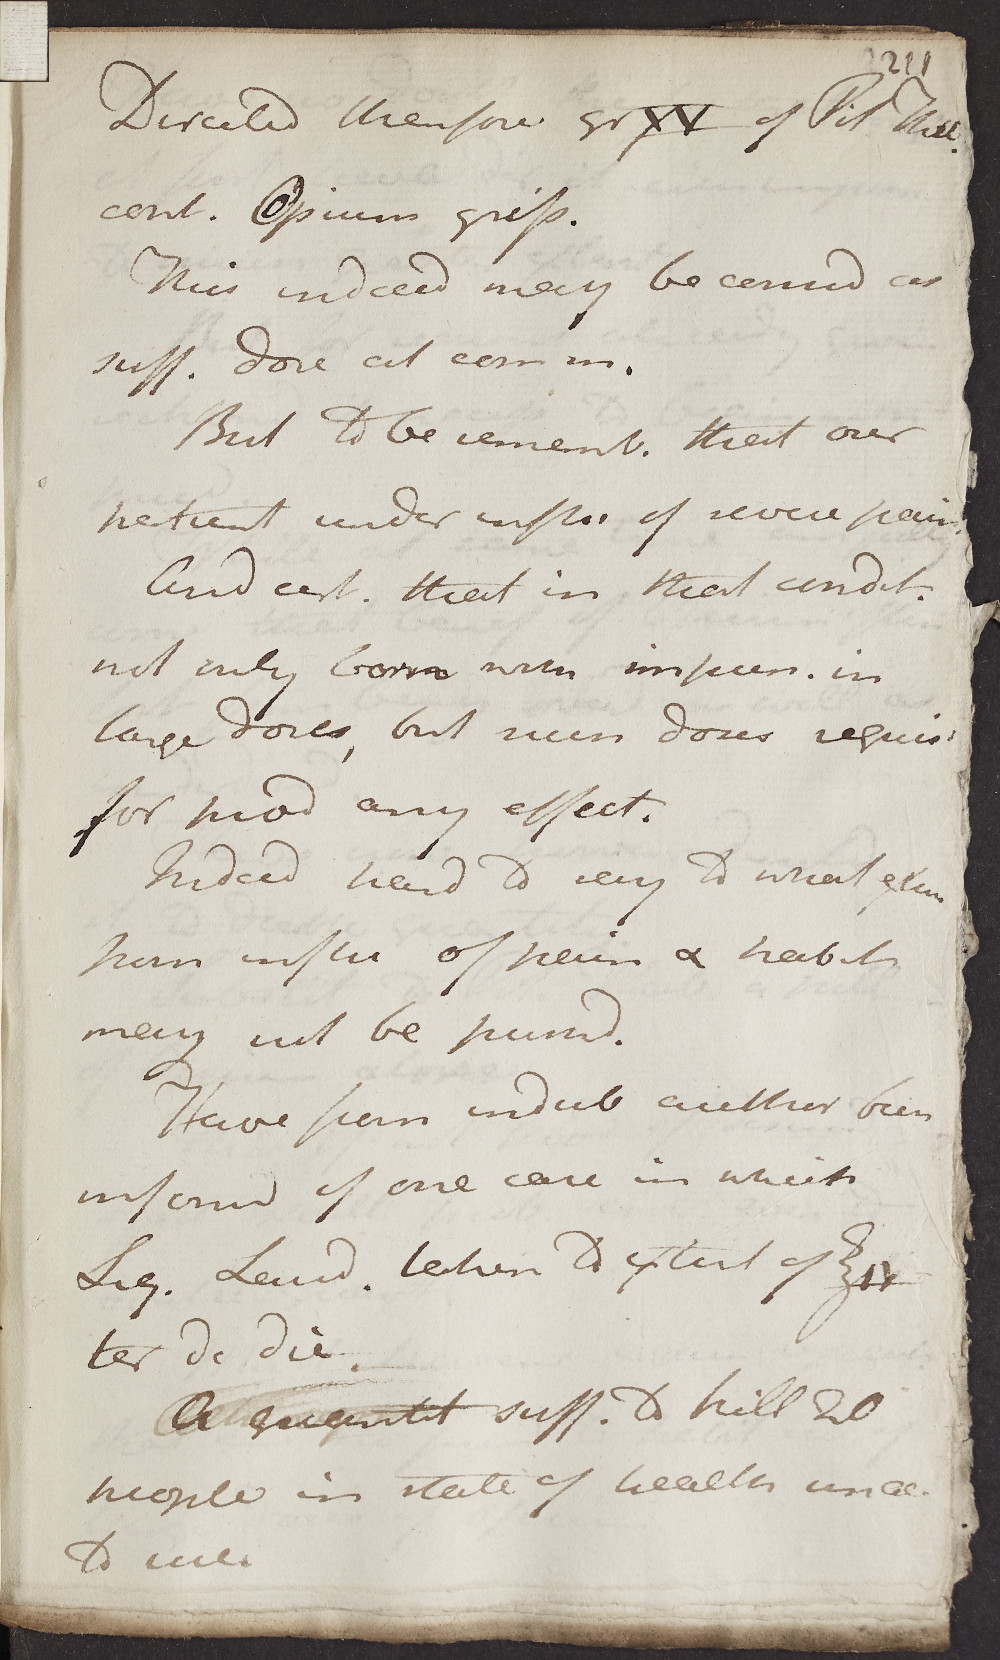 211
Directed therefore gr XV of Pil Theb.
cont. Opium griſs.
This indeed may be consid as
suff. dose at comm.
But to be rememb. that our
patient under influ of severe pain.
And cert. that in that condit.
not only born with impun. in
large doses, but such doses requis
for prod any effect.
Indeed hard to say to what extent
from influ of pain & habit
may not be pursued.
Have from indub author been
informd of one case in which
Liq. Laud. taken to extent of ℥iv
ter de die.
A quantit suff. to kill 20
people in state of health unac.
to use